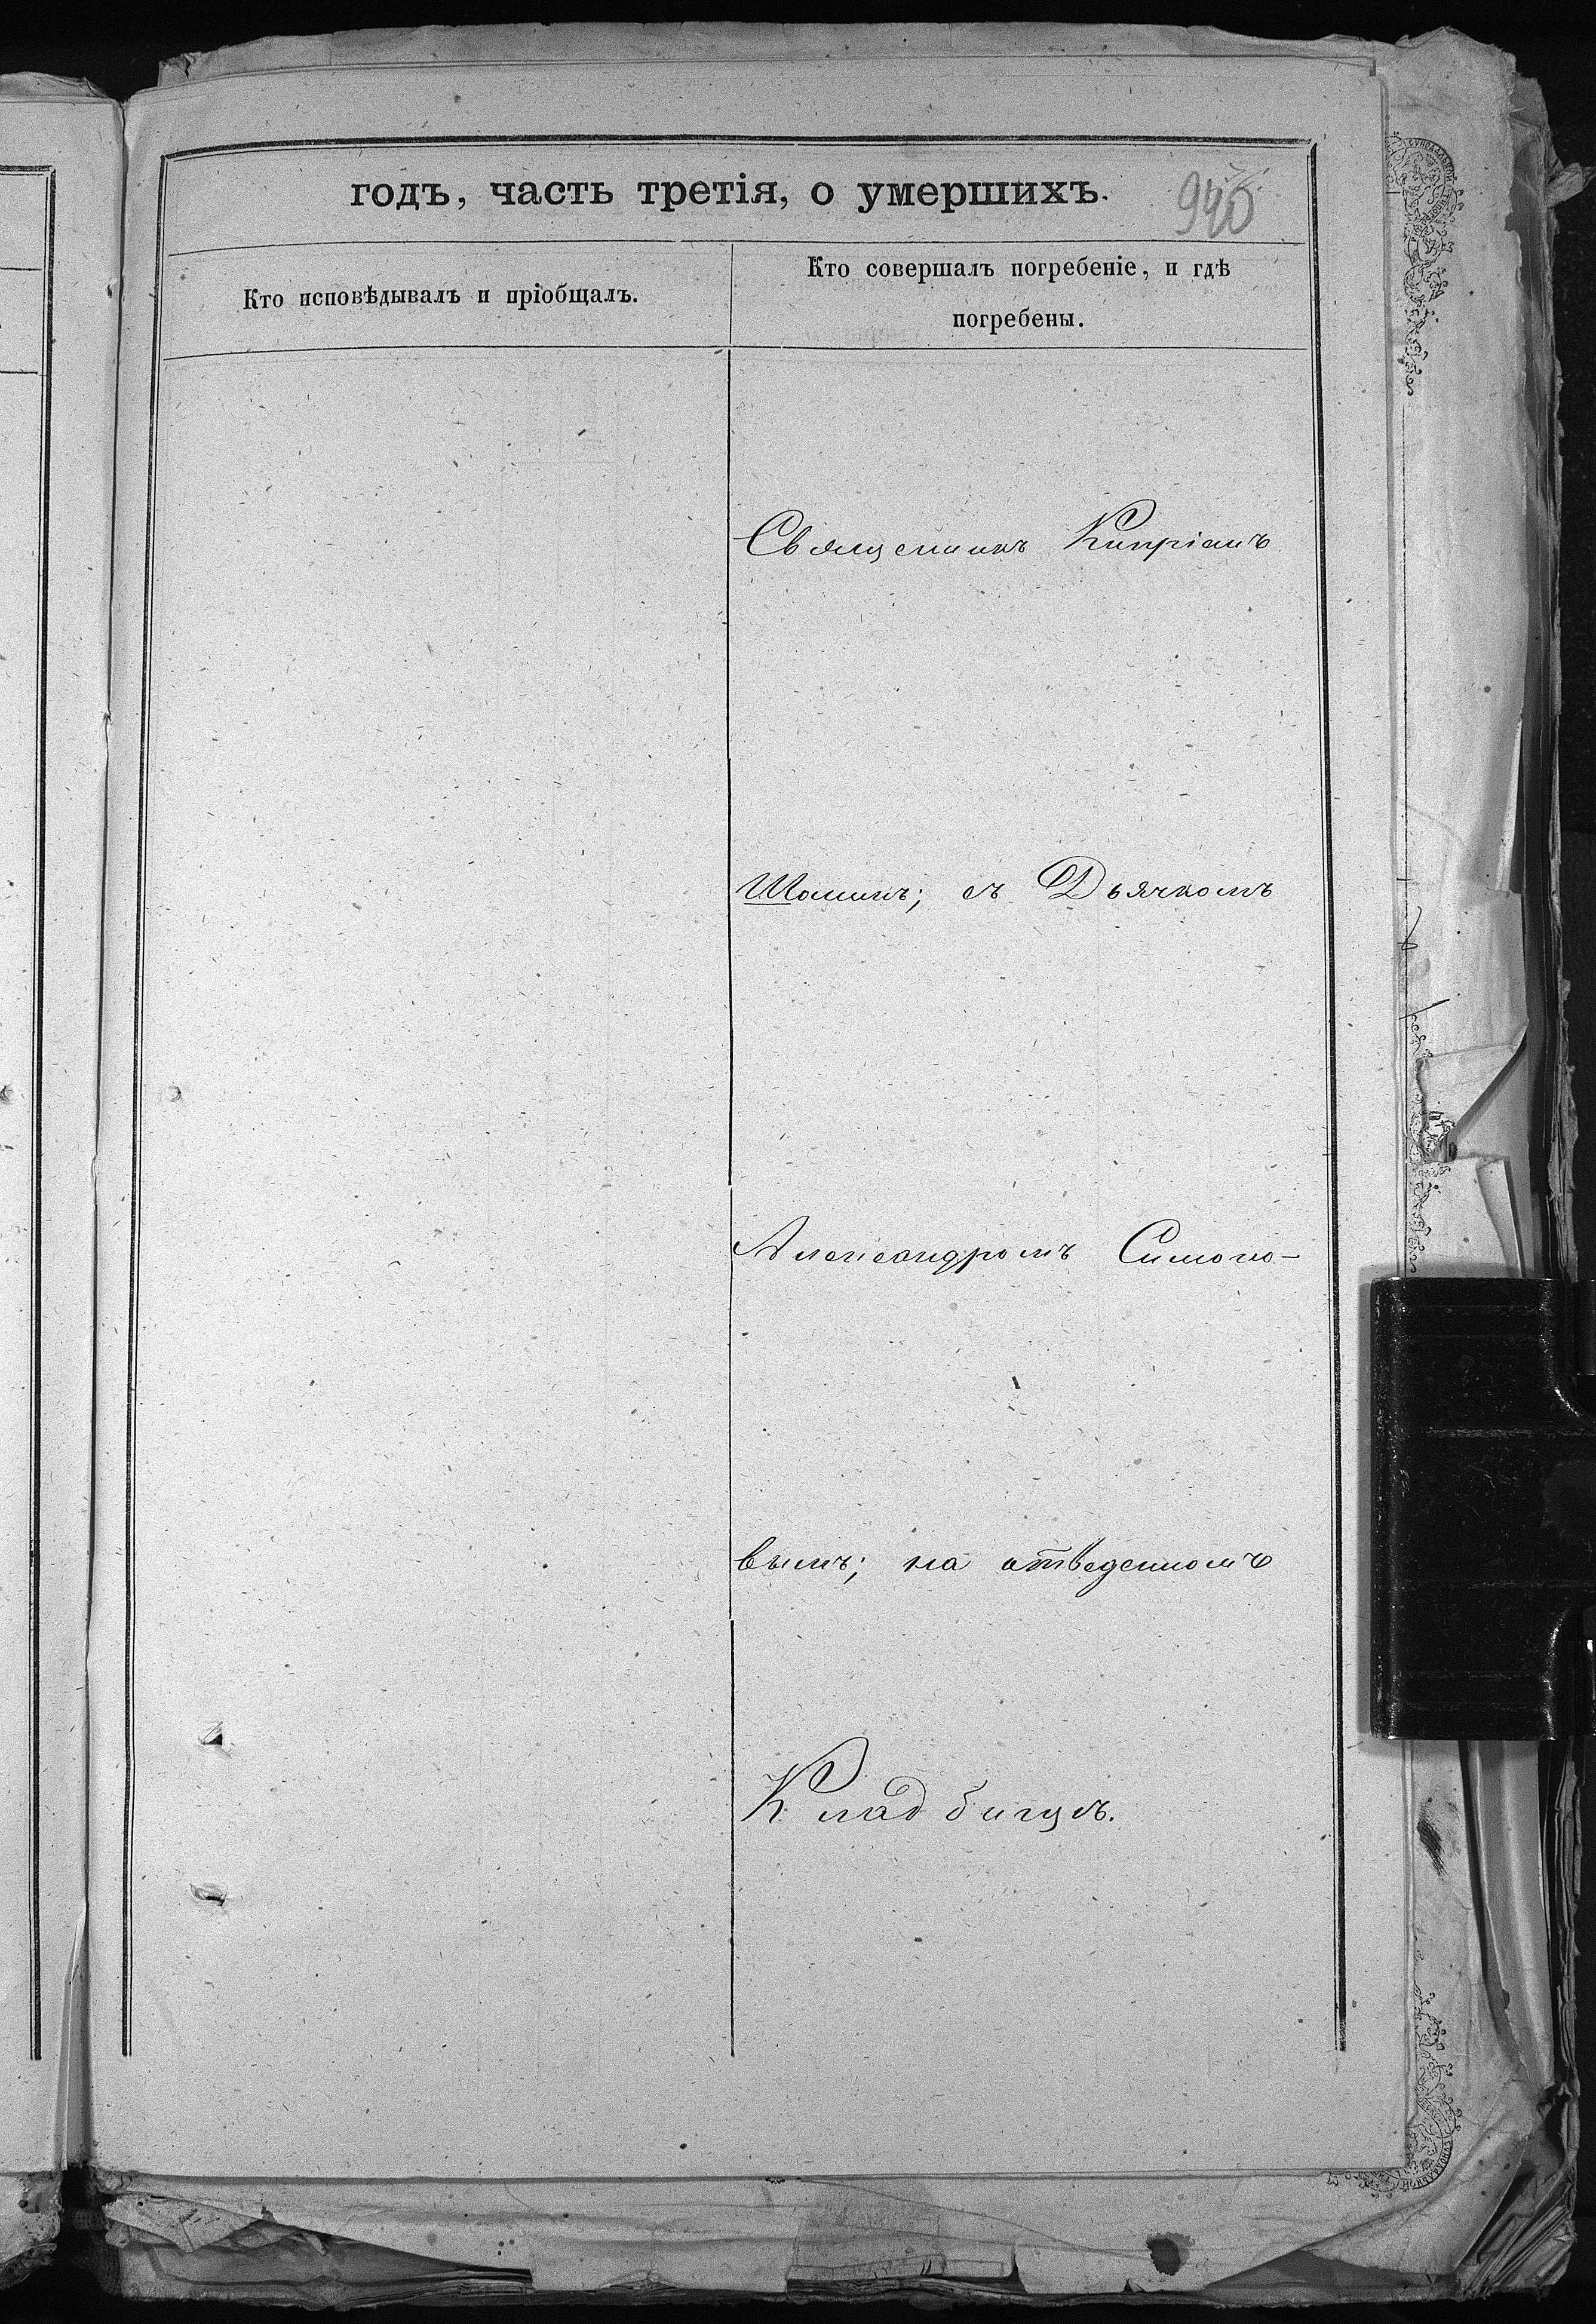 годъ, часть третія, о умершихъ.
Кто исповѣдывалъ и пріобщалъ.
Кто совершалъ погребеніе, и гдѣ
погребены.
Священникъ Кипріанъ
Шоминъ; съ Дьячкомъ
Александромъ Симоно-
вымъ; на отведенномъ
Кладбищѣ.